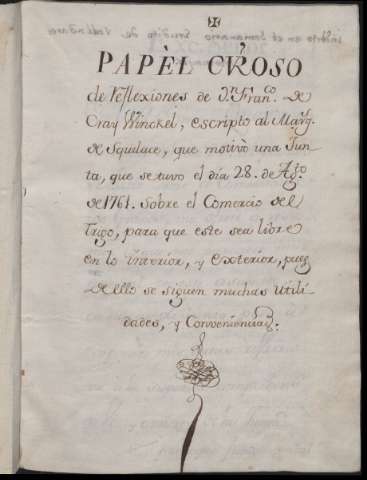 inserto en el Semanario Erudito de Valladares
PAPÈL CUROSO
de reflexiones de Dn. Franco. De
Cray Winckel, escripto al Marq.
de Squilace, que motivò una Jun-
ta, que se tuvo el dia 28. de Agto.
de 1761. sobre el Comercio del
Trigo, para que este sea libre
en lo interior, y exterior, pues
de ello se siguen muchas utili-
dades, y Conveniencias.